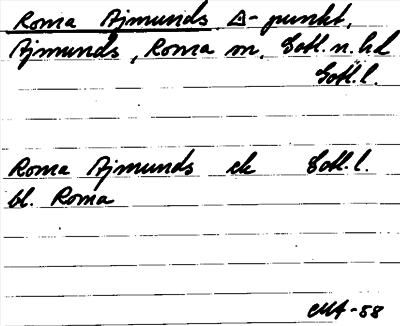 Roma Ajmunds △-punkt,
Ajmunds, Roma sn, Gotl. n. hd
Gotl. l.
Roma Ajmunds ek Gotl. l.
bl. Roma
CMA-58